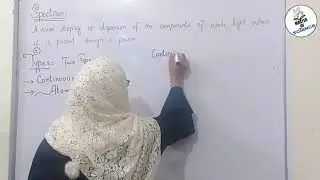 Spectrum:
A visual display or dispersion of the components of white light when
it is passed through a prism.
Types: Two Types
→ Continuous
→ Atom
Continu